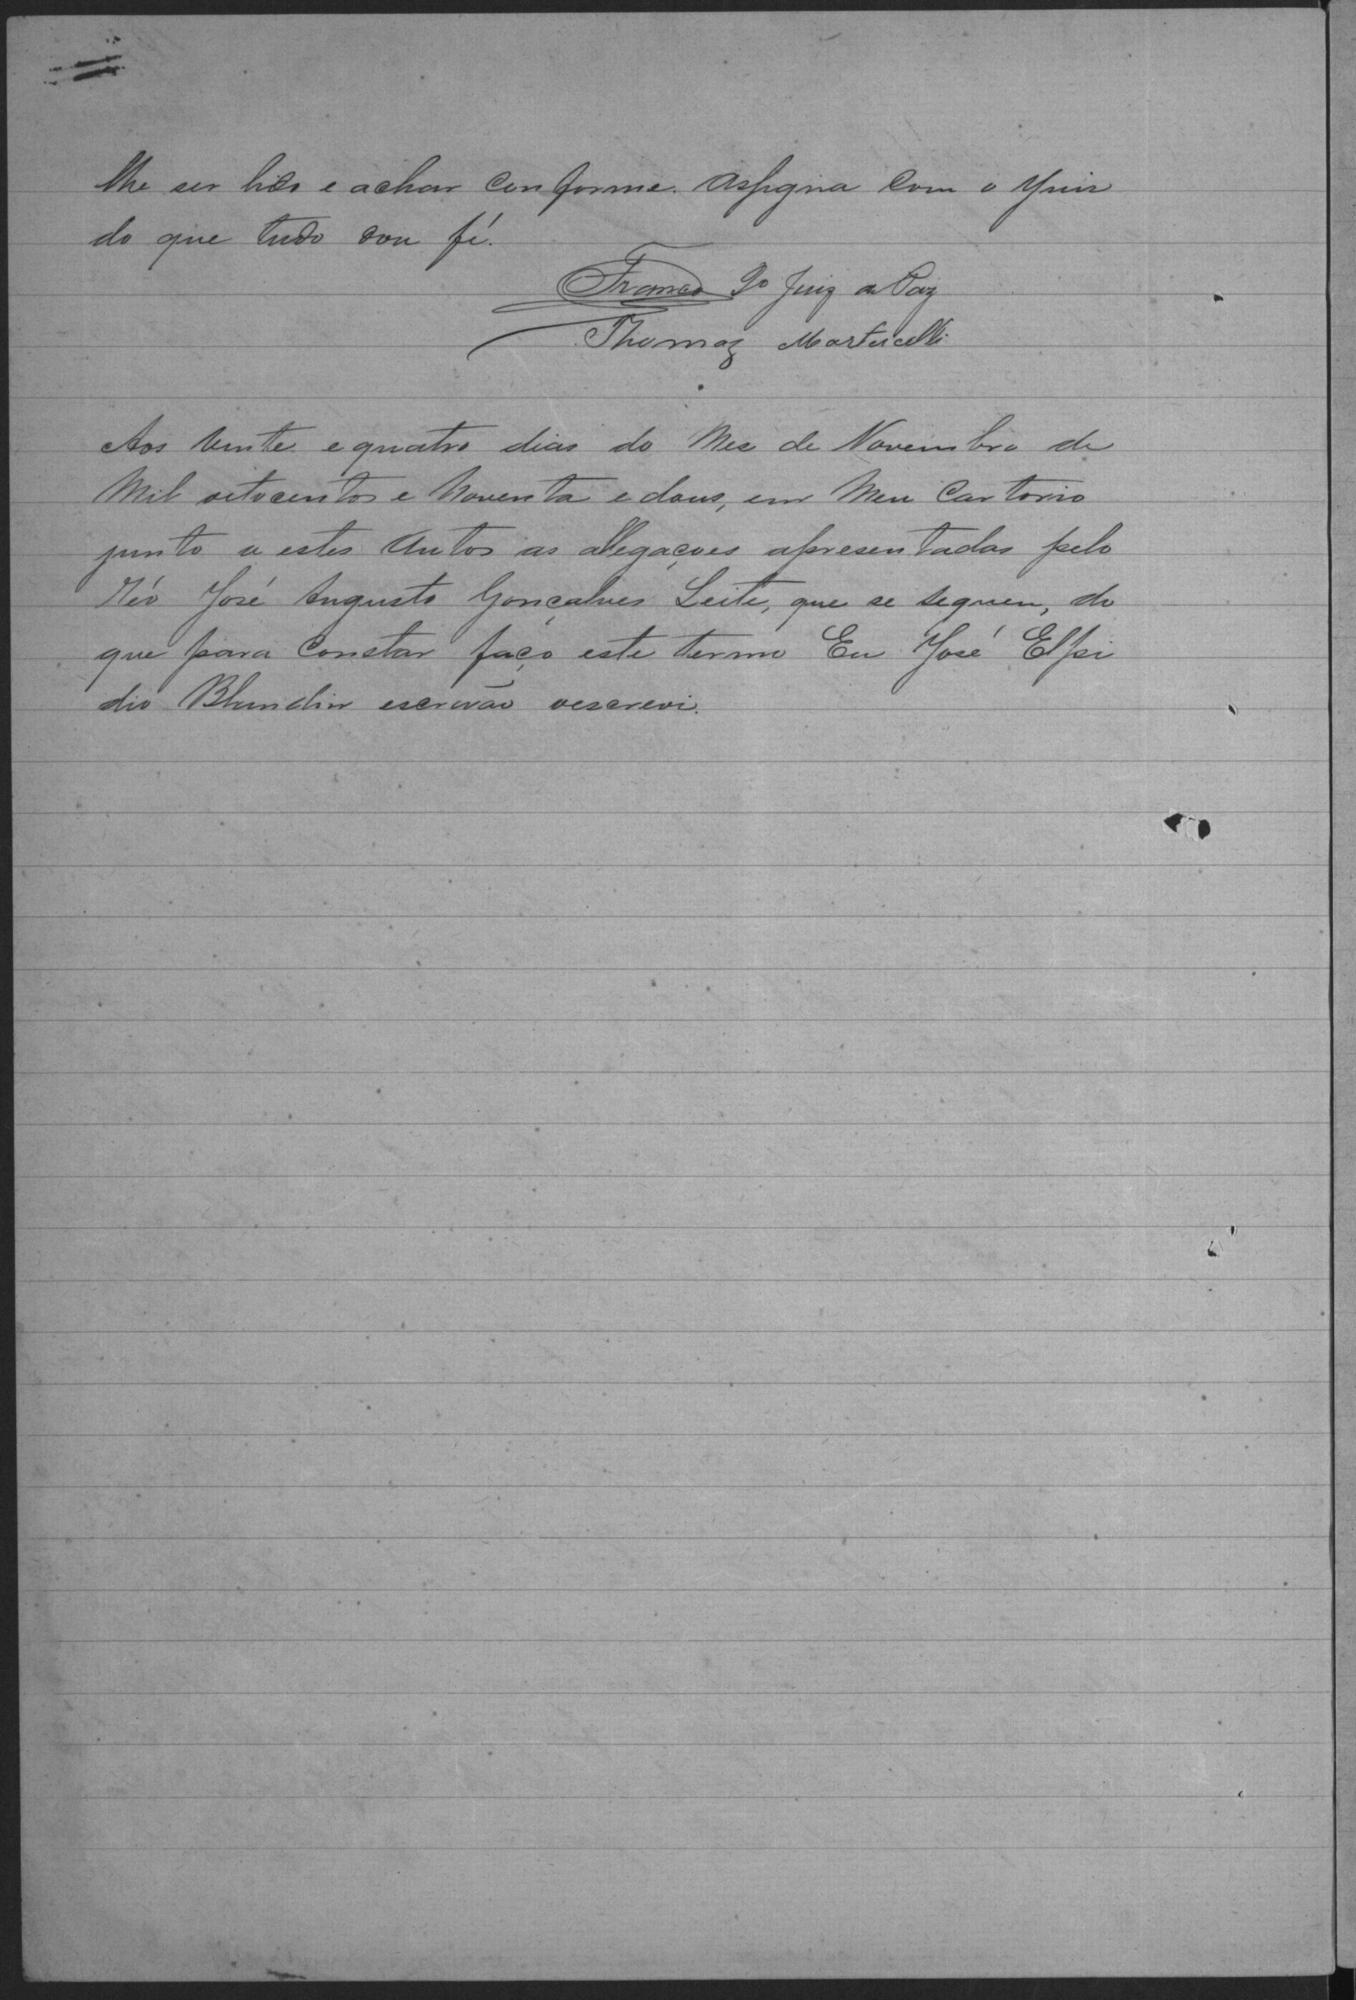 lhe ser lido e achar conforme. Assigna com o Juiz
do que tudo dou fé.
Franco Jo Juiz de Paz
Thomaz Martucelli
Aos vinte e quatro dias do Mez de Novembro de
Mil oitocentos e Noventa e dous, em Meu Cartorio
junto a estes Autos as allegações apresentadas pelo
Réo José Augusto Gonçalves Leite, que se seguem, do
que para Constar faço este termo Eu José Elpi
dio Blundin escrivão o escrevi.